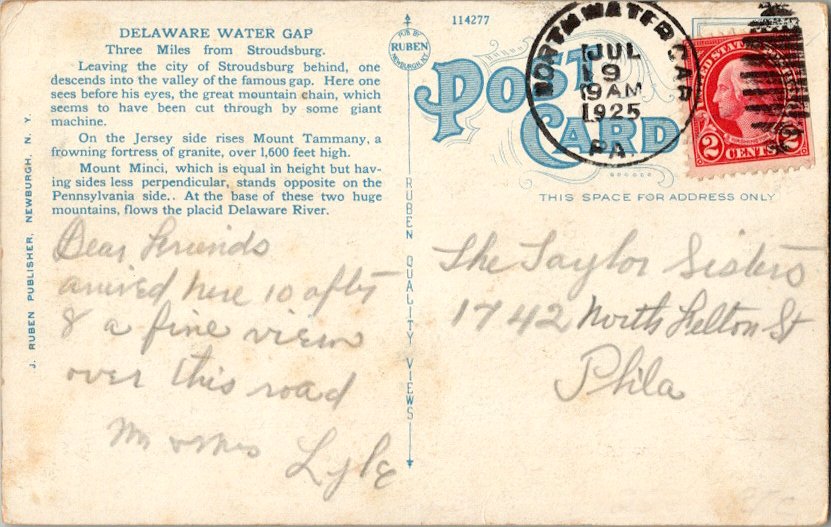 DELAWARE WATER GAP
Three Miles from Stroudsburg.
Leaving the city of Stroudsburg behind, one
descends into the valley of the famous gap. Here one
sees before his eyes, the great mountain chain, which
seems to have been cut through by some giant
machine.
On the Jersey side rises Mount Tammany, a
frowning fortress of granite, over 1,600 feet high.
Mount Minci, which is equal in height but hav-
ing sides less perpendicular, stands opposite on the
Pennsylvania side.. At the base of these two huge
mountains, flows the placid Delaware River.
J. RUBEN PUBLISHER, NEWBURGH, N. Y.
Dear Friends
arrived here 10 after
8 a fine view
over this road
Mr & Mrs
Lyle
PUB BY
RUBEN
NEWBURGH, N.Y.
RUBEN QUALITY VIEWS
114277
POST
CARD
THIS SPACE FOR ADDRESS ONLY
NORTH WATER GAP
JUL
9
9 AM
1925
PA.
UNITED STATES
2 CENTS 2
The Taylor Sisters
1742 North Felton St
Phila